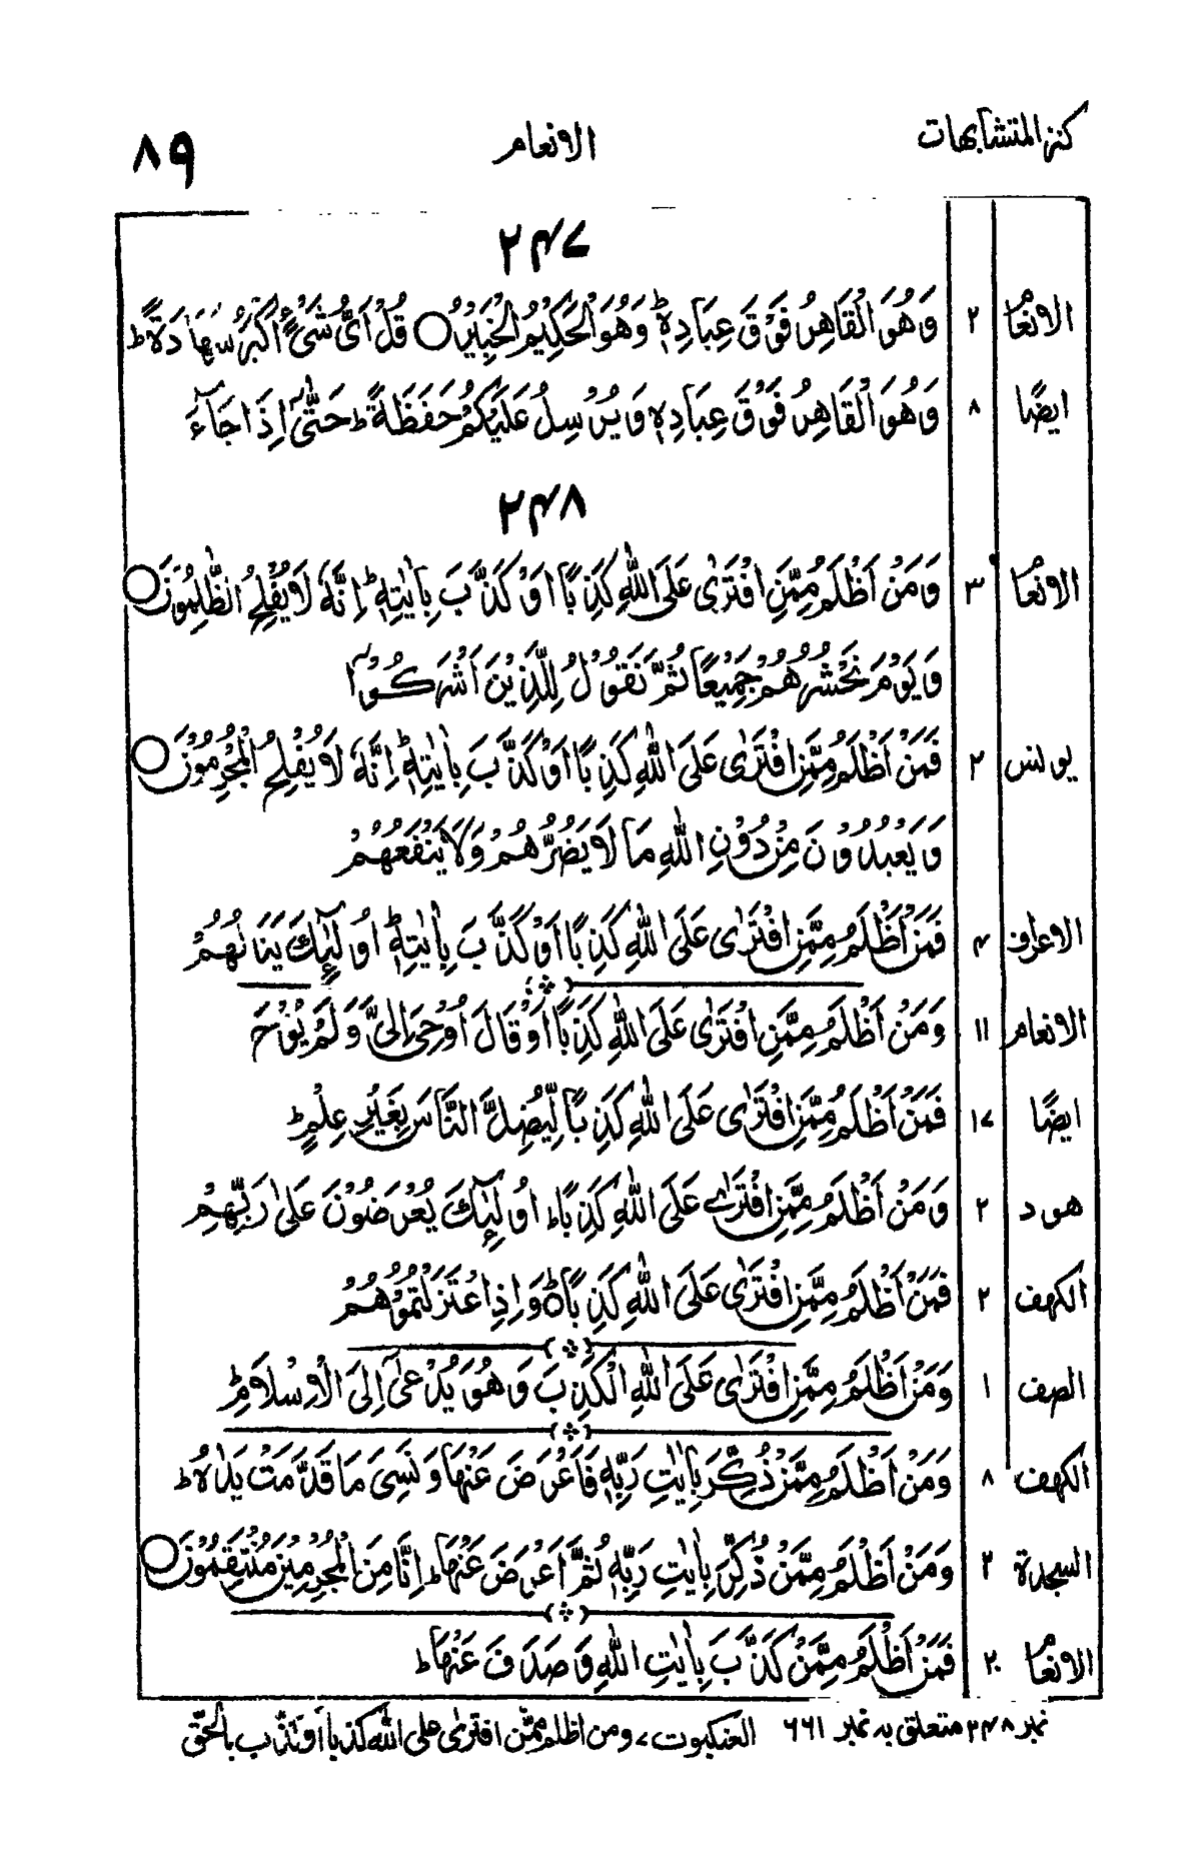 كنز المتشابهات الانعام ۸۹
۲۴۷
الانعام ۲ وَهُوَ الْقَاهِرُ فَوْقَ عِبَادِهٖ ؕ وَهُوَ الْحَكِيْمُ الْخَبِيْرُ ○ قُلْ اَیُّ شَیْءٍ اَكْبَرُ شَهَادَةً ؕ
ايضًا ۸ وَهُوَ الْقَاهِرُ فَوْقَ عِبَادِهٖ وَيُرْسِلُ عَلَيْكُمْ حَفَظَةً ؕ حَتّٰۤى اِذَا جَآءَ
۲۴۸
الانعام ۳ وَمَنْ اَظْلَمُ مِمَّنِ افْتَرٰى عَلَى اللّٰهِ كَذِبًا اَوْ كَذَّبَ بِاٰيٰتِهٖ ؕ اِنَّهٗ لَا يُفْلِحُ الظّٰلِمُوْنَ ○
وَيَوْمَ نَحْشُرُهُمْ جَمِيْعًا ثُمَّ نَقُوْلُ لِلَّذِيْنَ اَشْرَكُوْۤا
يونس ۲ فَمَنْ اَظْلَمُ مِمَّنِ افْتَرٰى عَلَى اللّٰهِ كَذِبًا اَوْ كَذَّبَ بِاٰيٰتِهٖ ؕ اِنَّهٗ لَا يُفْلِحُ الْمُجْرِمُوْنَ ○
وَيَعْبُدُوْنَ مِنْ دُوْنِ اللّٰهِ مَا لَا يَضُرُّهُمْ وَلَا يَنْفَعُهُمْ
الاعراف ۴ فَمَنْ اَظْلَمُ مِمَّنِ افْتَرٰى عَلَى اللّٰهِ كَذِبًا اَوْ كَذَّبَ بِاٰيٰتِهٖ ؕ اُولٰٓئِكَ يَنَالُهُمْ
الانعام ۱۱ وَمَنْ اَظْلَمُ مِمَّنِ افْتَرٰى عَلَى اللّٰهِ كَذِبًا اَوْ قَالَ اُوْحِیَ اِلَیَّ وَلَمْ يُوْحَ
ايضًا ۱۷ فَمَنْ اَظْلَمُ مِمَّنِ افْتَرٰى عَلَى اللّٰهِ كَذِبًا لِّيُضِلَّ النَّاسَ بِغَيْرِ عِلْمٍ ؕ
هود ۲ وَمَنْ اَظْلَمُ مِمَّنِ افْتَرٰى عَلَى اللّٰهِ كَذِبًا ؕ اُولٰٓئِكَ يُعْرَضُوْنَ عَلٰى رَبِّهِمْ
الكهف ۲ فَمَنْ اَظْلَمُ مِمَّنِ افْتَرٰى عَلَى اللّٰهِ كَذِبًا ○ؕ وَاِذِ اعْتَزَلْتُمُوْهُمْ
الصف ۱ وَمَنْ اَظْلَمُ مِمَّنِ افْتَرٰى عَلَى اللّٰهِ الْكَذِبَ وَهُوَ يُدْعٰۤى اِلَى الْاِسْلَامِ ؕ
الكهف ۸ وَمَنْ اَظْلَمُ مِمَّنْ ذُكِّرَ بِاٰيٰتِ رَبِّهٖ فَاَعْرَضَ عَنْهَا وَنَسِیَ مَا قَدَّمَتْ يَدٰهُ ؕ
السجدة ۲ وَمَنْ اَظْلَمُ مِمَّنْ ذُكِّرَ بِاٰيٰتِ رَبِّهٖ ثُمَّ اَعْرَضَ عَنْهَا ؕ اِنَّا مِنَ الْمُجْرِمِيْنَ مُنْتَقِمُوْنَ ○
الانعام ۲۰ فَمَنْ اَظْلَمُ مِمَّنْ كَذَّبَ بِاٰيٰتِ اللّٰهِ وَصَدَفَ عَنْهَا ؕ
نمبر ۲۴۸ متعلق به نمبر ۶۶۱ العنكبوت ۷ ومن اظلم ممّن افترٰى على اللّٰه كذبا أو كذّب بالحقّ